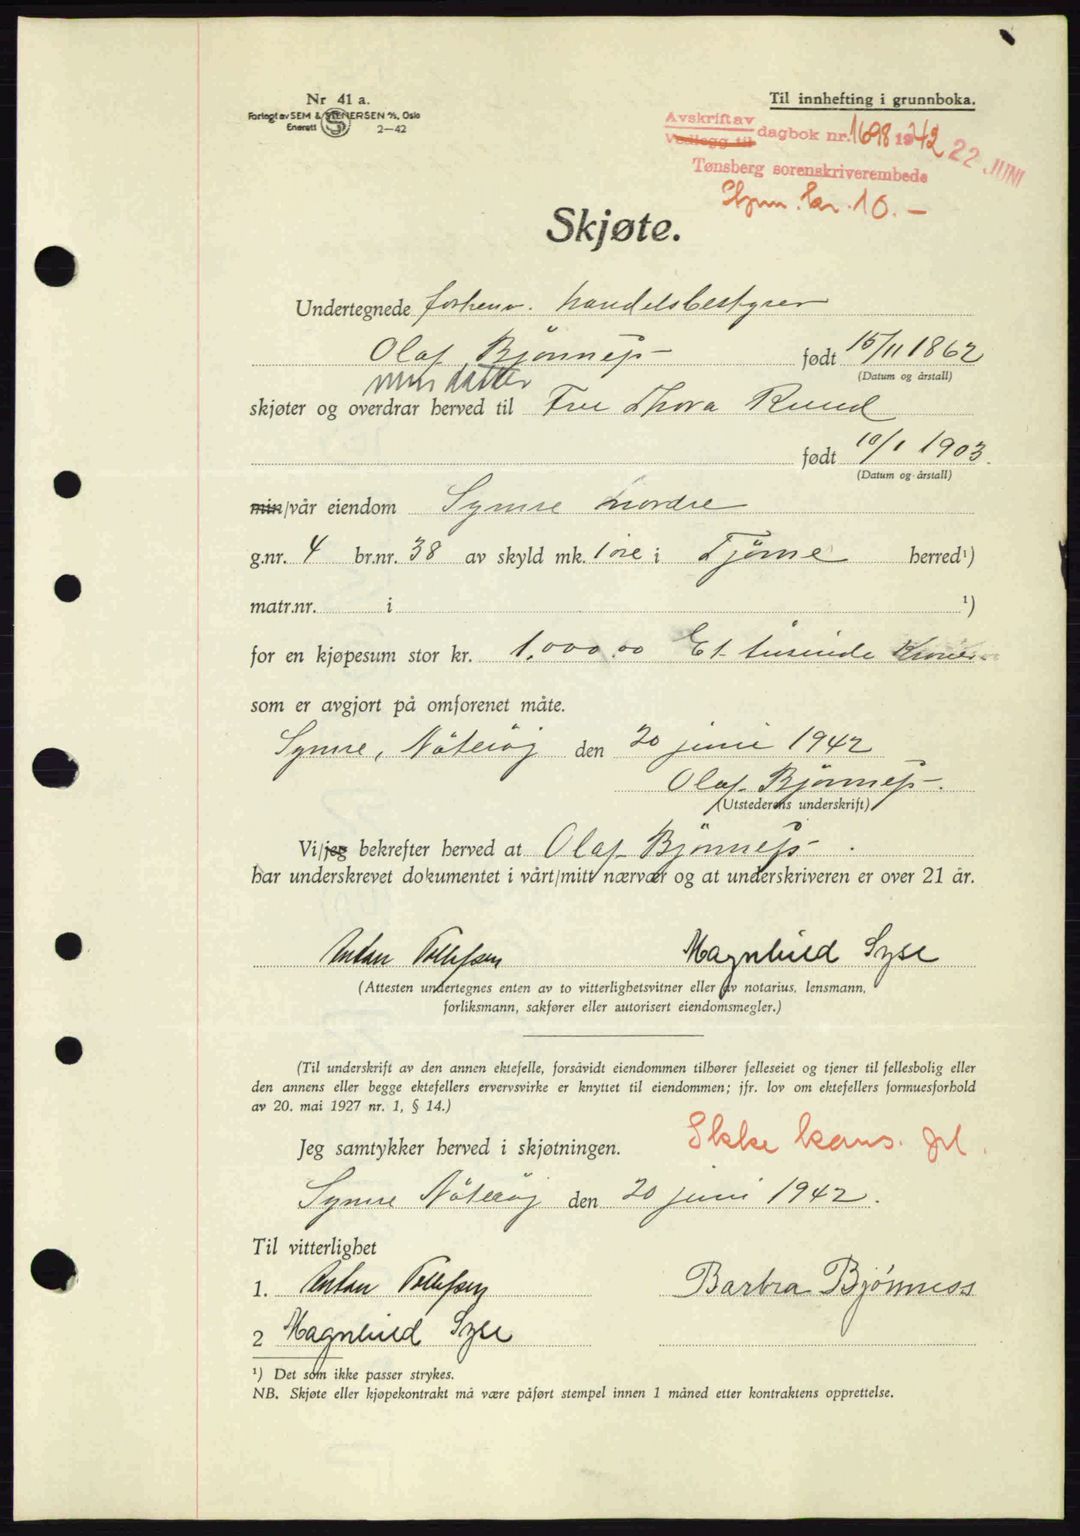 Nr 41 a.
Forlagt av SEM & STENERSEN A/S, Oslo
Enerett 2-42
Til innhefting i grunnboka.
Avskrift av
Vedlegg til dagbok nr. 1698 1942 22 JUNI
Tønsberg sorenskriverembede
Skjøte.
Undertegnede forhenv. handelsbestyrer
Olaf Bjønness født 15/11 1862
(Datum og årstall)
min datter
skjøter og overdrar herved til Fru Thora Ruud
født 10/1 1903.
(Datum og årstall)
min/vår eiendom Symre nordre
g.nr. 4 br.nr. 38 av skyld mk. 1 øre i Tjøme herred¹)
matr.nr. i ¹)
for en kjøpesum stor kr. 1.000.00 Et tusinde Kroner
som er avgjort på omforenet måte.
Symre, Nøterøj den 20 juni 1942
Olaf Bjønness.
(Utstederens underskrift)
Vi/jeg bekrefter herved at Olaf Bjønness.
har underskrevet dokumentet i vårt/mitt nærvær og at underskriveren er over 21 år.
Anton Tollefsen Magnhild Syse
(Attesten undertegnes enten av to vitterlighetsvitner eller av notarius, lensmann,
forliksmann, sakfører eller autorisert eiendomsmegler.)
(Til underskrift av den annen ektefelle, forsåvidt eiendommen tilhører felleseiet og tjener til fellesbolig eller
den annens eller begge ektefellers ervervsvirke er knyttet til eiendommen; jfr. lov om ektefellers formuesforhold
av 20. mai 1927 nr. 1, § 14.)
Jeg samtykker herved i skjøtningen. Ikke kons. pl.
Symre Nøterøj den 20 juni 1942.
Til vitterlighet
1. Anton Tollefsen Barbra Bjønness
2 Magnhild Syse
¹) Det som ikke passer strykes.
NB. Skjøte eller kjøpekontrakt må være påført stempel innen 1 måned etter kontraktens opprettelse.